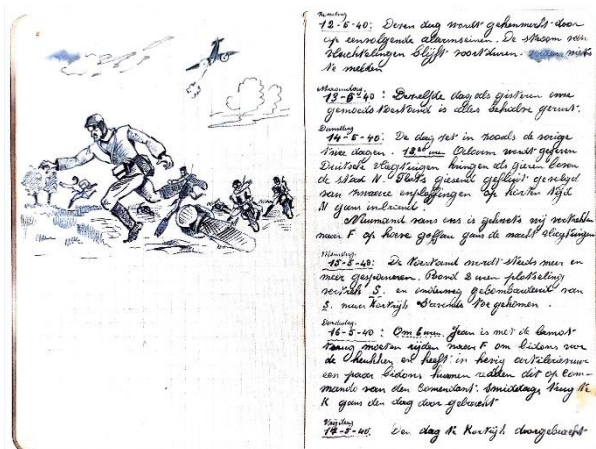 Zondag
12-5-40: Dezen dag wordt gekenmerkt door
op eenvolgende alarmseinen. De stroom van
vluchtelingen blijft voortduren. verders niets
te melden
Maandag
13-5-40: Dezelfde dag als gisteren onze
gemoedstoestand is alles behalve gerust.
Dinsdag
14-5-40: De dag zet in zooals de vorige
twee dagen. uur Alarm wordt gegeven
Duitsche vliegtuigen hangen als gieren boven
de stad N. gierend gefluit gevolgd
van zware ontploffingen op korten tijd
N gans in brand.
Niemand van ons is gekwetst wij vertrekken
naar F op hoeve gans de nacht vliegtuigen
Woensdag
15-5-40: De toestand wordt steeds meer en
meer gespannen. Rond 2 uren plotseling
vertrek S. en onderweg gebombardeerd van
S. naar Kortrijk S'avonds toe gekomen.
Donderdag
16-5-40: Om 6 uren Jean is met de kamot
terug moeten rijden naar F om bidons voor
de keuken en heeft in hevig artillerievuur
een paar bidons kunnen redden dit op Com-
mando van den Comendant. Smiddags terug te
K gans den dag door gebracht
Vrijdag
17-5-40: Den dag te Kortrijk doorgebracht